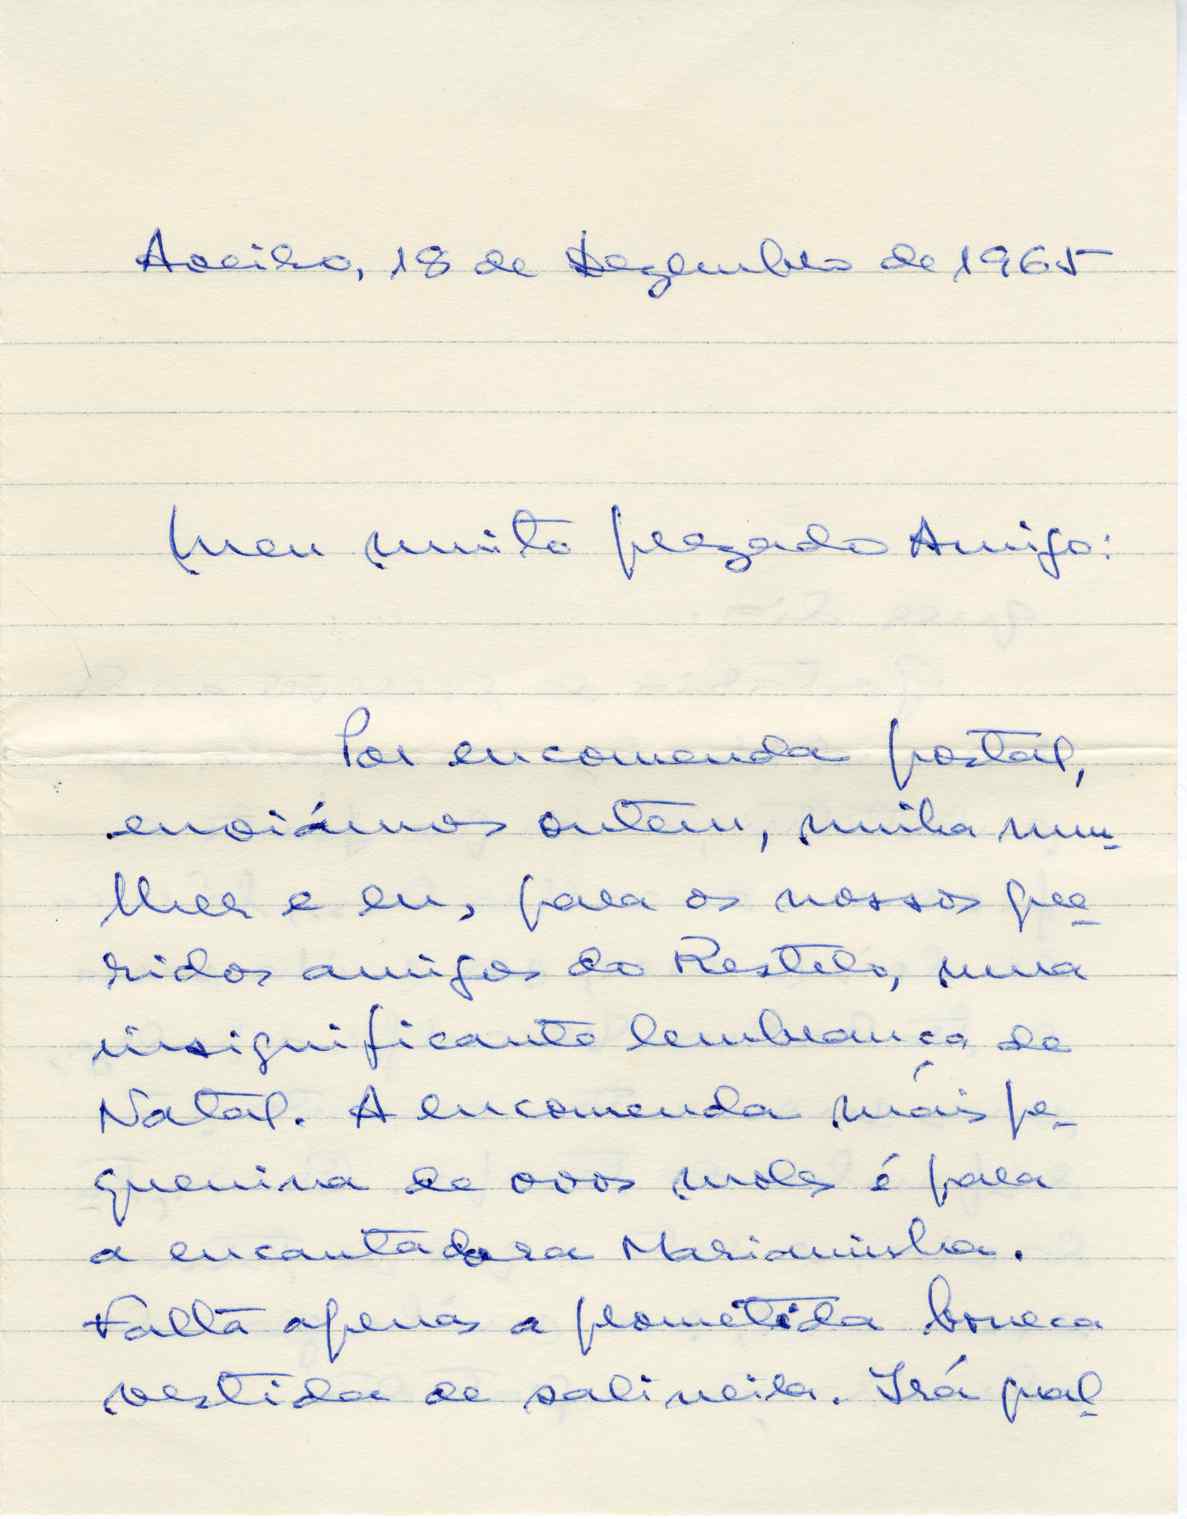 Aveiro, 18 de Dezembro de 1965
Meu muito prezado Amigo:
Por encomenda postal,
enviámos ontem, minha mu-
lher e eu, para os nossos que-
ridos amigos do Restelo, uma
insignificante lembrança de
Natal. A encomenda máis pe-
quenina de ovos moles é para
a encantadora Marianinha.
Falta apenas a prometida boneca
vestida de salineira. Irá qual-